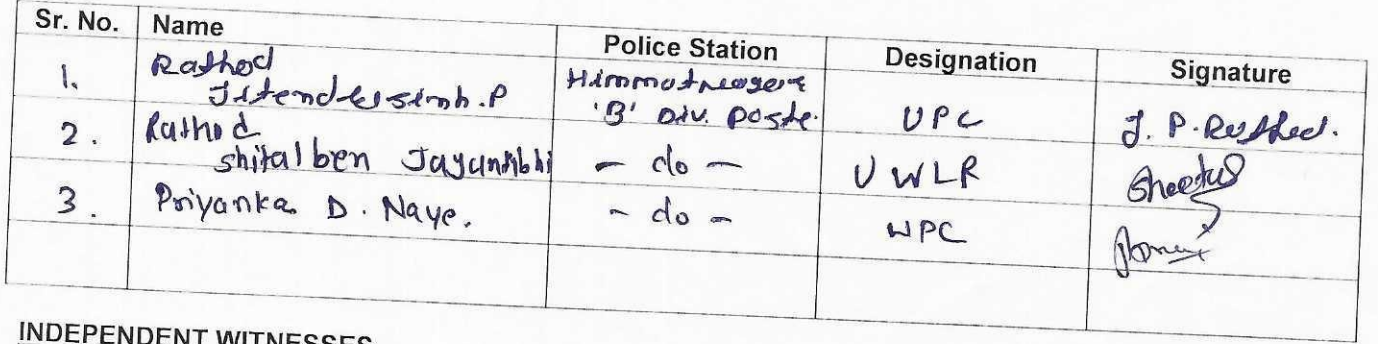 Sr. No. Name Police Station Designation Signature
1. Rathod Himmatnagar
Jitendrasinh.P 'B' Div. Poste. UPC J. P. Rathod.
2. Rathod
shitalben Jayantibhi - do - UWLR Sheetal
3. Priyanka D. Naye. - do - WPC
INDEPENDENT WITNESSES